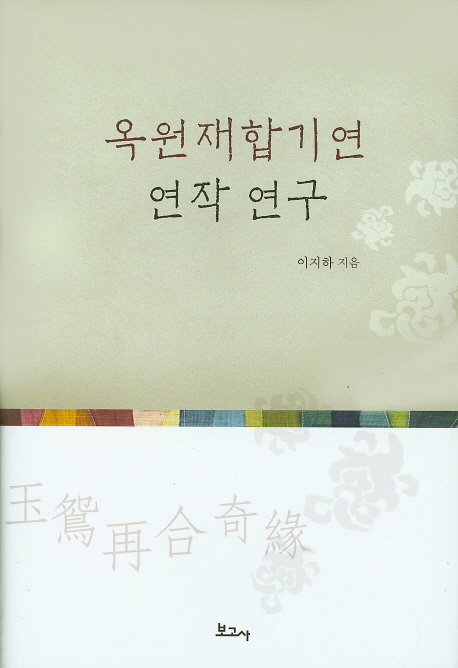 옥원재합기연
연작 연구
이지하 지음
玉鴛再合奇緣
보고사